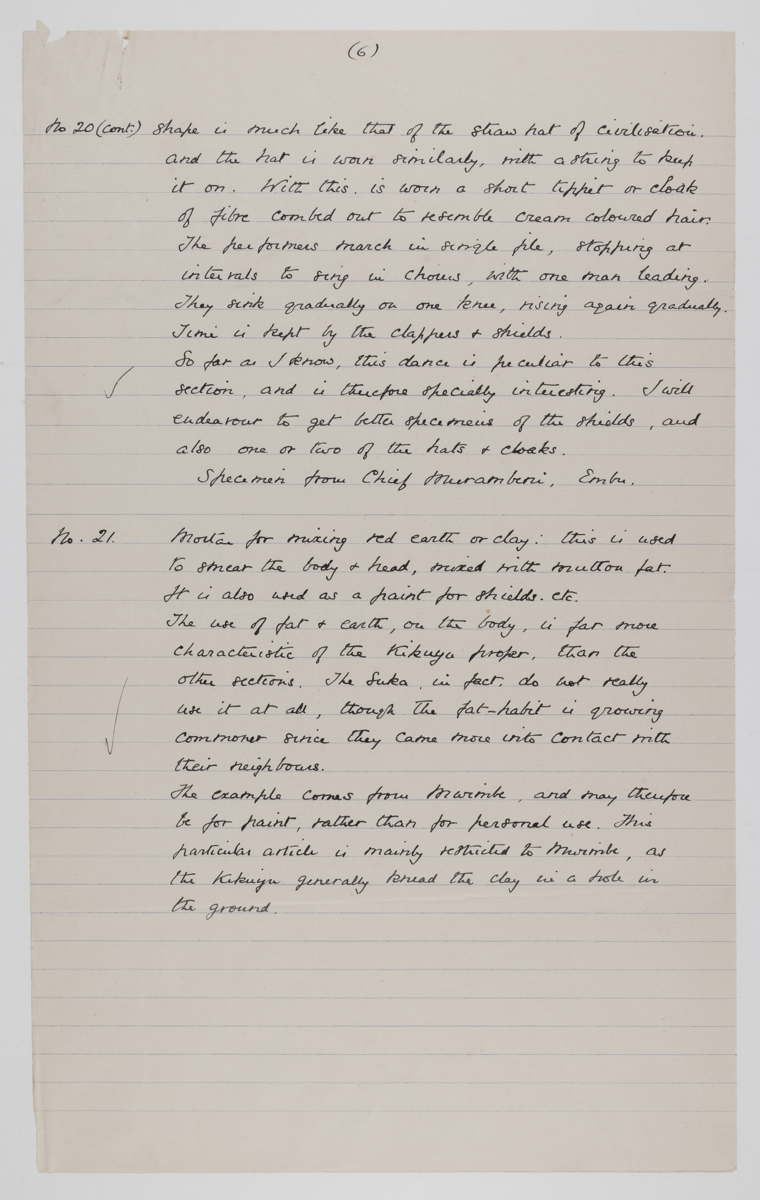 (6)
No 20 (cont.) shape is much like that of the straw hat of civilisation.
and the hat is worn similarly, with a string to keep
it on. With this. is worn a short tippet or cloak
of fibre combed out to resemble cream coloured hair.
The performers march in single file, stopping at
intervals to sing in chorus, with one man leading.
They sink gradually on one knee, rising again gradually.
Time is kept by the clappers & shields.
So far as I know, this dance is peculiar to this
section, and is therefore specially interesting. I will
endeavour to get better specimens of the shields, and
also one or two of the hats & cloaks.
Specimen from Chief Murambeni, Embu.
No. 21. Mortar for mixing red earth or clay: this is used
to smear the body & head, mixed with mutton fat.
It is also used as a paint for shields. etc.
The use of fat & earth, on the body, is far more
characteristic of the Kikuyu proper, than the
other sections. The Suka, in fact, do not really
use it at all, though the fat-habit is growing
commoner since they came more into contact with
their neighbours.
The example comes from Mwimbe, and may therefore
be for paint, rather than for personal use. This
particular article is mainly restricted to Mwimbe, as
the Kikuyu generally knead the clay in a hole in
the ground.